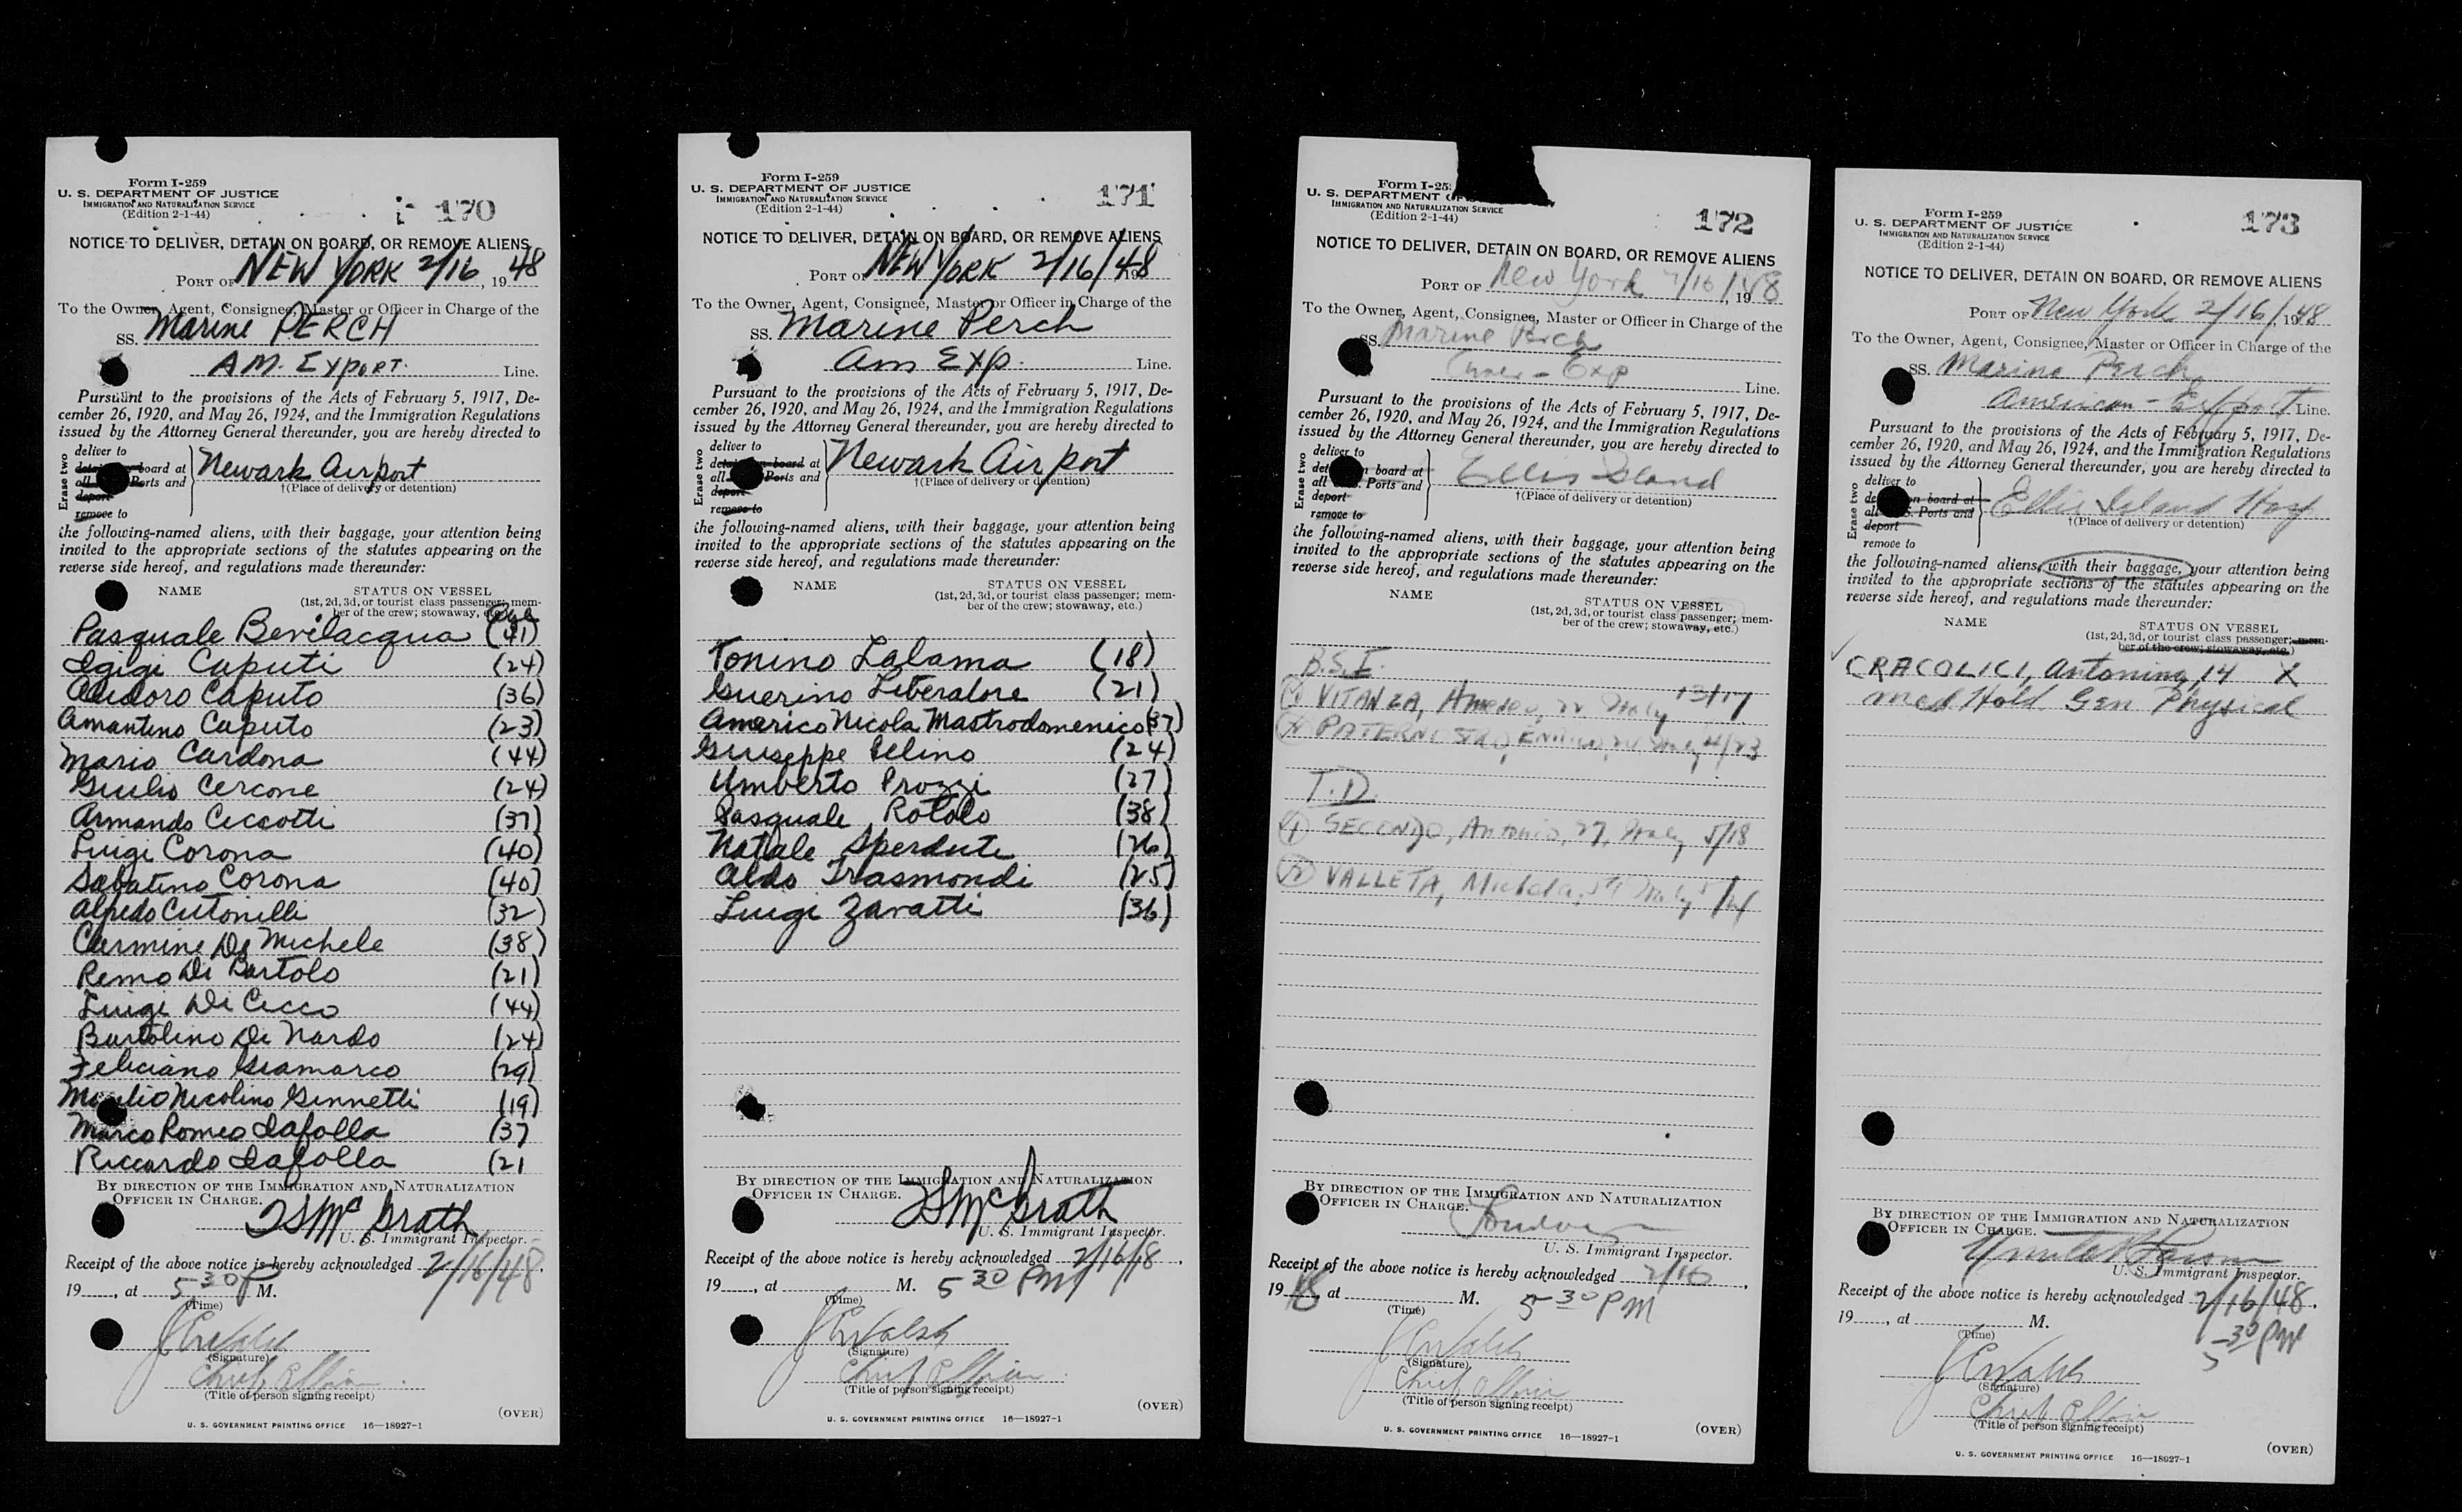 Form I-259
U. S. DEPARTMENT OF JUSTICE
IMMIGRATION AND NATURALIZATION SERVICE
(Edition 2-1-44)
170
NOTICE TO DELIVER, DETAIN ON BOARD, OR REMOVE ALIENS
PORT OF NEW YORK 2/16, 1948
To the Owner, Agent, Consignee, Master or Officer in Charge of the
SS. Marine PERCH
AM. EXPORT. Line.
Pursuant to the provisions of the Acts of February 5, 1917, De-
cember 26, 1920, and May 26, 1924, and the Immigration Regulations
issued by the Attorney General thereunder, you are hereby directed to
Erase two
deliver to
board at
all Ports and
deport
remove to
Newark Airport
†(Place of delivery or detention)
the following-named aliens, with their baggage, your attention being
invited to the appropriate sections of the statutes appearing on the
reverse side hereof, and regulations made thereunder:
NAME STATUS ON VESSEL
(1st, 2d, 3d, or tourist class passenger; mem-
ber of the crew; stowaway, etc.)
Age
Pasquale Bevilacqua (41)
Igigi Caputi (24)
Caputo (36)
Amantino Caputo (23)
Mario Cardona (44)
Giulio Cercone (24)
Armando Ceccotti (37)
Luigi Corona (40)
Sabatino Corona (40)
Alfredo Cutonilli (32)
Carmine De Michele (38)
Remo Di Bartolo (21)
Luigi Di Cicco (44)
Bartolino De Nardo (24)
Feliciano Giamarco (29)
Nicolino Ginnetti (19)
Marco Romeo Iafolla (37
Riccardo Iafolla (21
BY DIRECTION OF THE IMMIGRATION AND NATURALIZATION
OFFICER IN CHARGE.
McGrath
U. S. Immigrant Inspector.
Receipt of the above notice is hereby acknowledged 2/16/48,
19____, at 5 30 P M.
(Time)
J E Walsh
(Signature)
Chief
(Title of person signing receipt)
(OVER)
U. S. GOVERNMENT PRINTING OFFICE 16—18927-1
Form I-259
U. S. DEPARTMENT OF JUSTICE
IMMIGRATION AND NATURALIZATION SERVICE
(Edition 2-1-44)
171
NOTICE TO DELIVER, DETAIN ON BOARD, OR REMOVE ALIENS
PORT OF NEW YORK 2/16/1948
To the Owner, Agent, Consignee, Master or Officer in Charge of the
SS. Marine Perch
Am Exp. Line.
Pursuant to the provisions of the Acts of February 5, 1917, De-
cember 26, 1920, and May 26, 1924, and the Immigration Regulations
issued by the Attorney General thereunder, you are hereby directed to
Erase two
deliver to
board at
all Ports and
deport
remove to
Newark Airport
†(Place of delivery or detention)
the following-named aliens, with their baggage, your attention being
invited to the appropriate sections of the statutes appearing on the
reverse side hereof, and regulations made thereunder:
NAME STATUS ON VESSEL
(1st, 2d, 3d, or tourist class passenger; mem-
ber of the crew; stowaway, etc.)
Tonino Lalama (18)
Guerino Liberatore (21)
Americo Nicola Mastrodomenico (37)
Giuseppe Pelino (24)
Umberto Prozzi (27)
Pasquale Rotolo (38)
Natale Sperduti (26)
Aldo Trasmondi (25)
Luigi Zavatti (36)
BY DIRECTION OF THE IMMIGRATION AND NATURALIZATION
OFFICER IN CHARGE.
McGrath
U. S. Immigrant Inspector.
Receipt of the above notice is hereby acknowledged 2/16/48,
19____, at ____ M. 5 30 PM
(Time)
J E Walsh
(Signature)
Chief
(Title of person signing receipt)
(OVER)
U. S. GOVERNMENT PRINTING OFFICE 16—18927-1
Form I-25
U. S. DEPARTMENT OF
IMMIGRATION AND NATURALIZATION SERVICE
(Edition 2-1-44)
172
NOTICE TO DELIVER, DETAIN ON BOARD, OR REMOVE ALIENS
PORT OF New York 2/16/1948
To the Owner, Agent, Consignee, Master or Officer in Charge of the
SS. Marine Perch
Amer - Exp Line.
Pursuant to the provisions of the Acts of February 5, 1917, De-
cember 26, 1920, and May 26, 1924, and the Immigration Regulations
issued by the Attorney General thereunder, you are hereby directed to
Erase two
deliver to
board at
all Ports and
deport
remove to
Ellis Island
†(Place of delivery or detention)
the following-named aliens, with their baggage, your attention being
invited to the appropriate sections of the statutes appearing on the
reverse side hereof, and regulations made thereunder:
NAME STATUS ON VESSEL
(1st, 2d, 3d, or tourist class passenger; mem-
ber of the crew; stowaway, etc.)
B.S.I.
(1) VITANZA, Amedeo, 22 Italy 13/17
(2) PATERNOSTRO, Italy 4/23
T.D.
(1) SECONDO, Antonio, 27, Italy 5/18
(2) VALLETA, Italy
BY DIRECTION OF THE IMMIGRATION AND NATURALIZATION
OFFICER IN CHARGE.
U. S. Immigrant Inspector.
Receipt of the above notice is hereby acknowledged 2/16,
1948, at ____ M. 5 30 PM
(Time)
J E Walsh
(Signature)
Chief
(Title of person signing receipt)
(OVER)
U. S. GOVERNMENT PRINTING OFFICE 16—18927-1
Form I-259
U. S. DEPARTMENT OF JUSTICE
IMMIGRATION AND NATURALIZATION SERVICE
(Edition 2-1-44)
173
NOTICE TO DELIVER, DETAIN ON BOARD, OR REMOVE ALIENS
PORT OF New York 2/16/1948
To the Owner, Agent, Consignee, Master or Officer in Charge of the
SS. Marine Perch
American - Export Line.
Pursuant to the provisions of the Acts of February 5, 1917, De-
cember 26, 1920, and May 26, 1924, and the Immigration Regulations
issued by the Attorney General thereunder, you are hereby directed to
Erase two
deliver to
on board at
all S. Ports and
deport
remove to
Ellis Island Hosp
†(Place of delivery or detention)
the following-named aliens, with their baggage, your attention being
invited to the appropriate sections of the statutes appearing on the
reverse side hereof, and regulations made thereunder:
NAME STATUS ON VESSEL
(1st, 2d, 3d, or tourist class passenger; mem-
ber of the crew; stowaway, etc.)
✓ CRACOLICI, Antonina, 14 X
Med Hold Gen Physical
BY DIRECTION OF THE IMMIGRATION AND NATURALIZATION
OFFICER IN CHARGE.
U. S. Immigrant Inspector.
Receipt of the above notice is hereby acknowledged 2/16/48,
19____, at ____ M.
5 30 PM
(Time)
J E Walsh
(Signature)
Chief
(Title of person signing receipt)
(OVER)
U. S. GOVERNMENT PRINTING OFFICE 16—18927-1